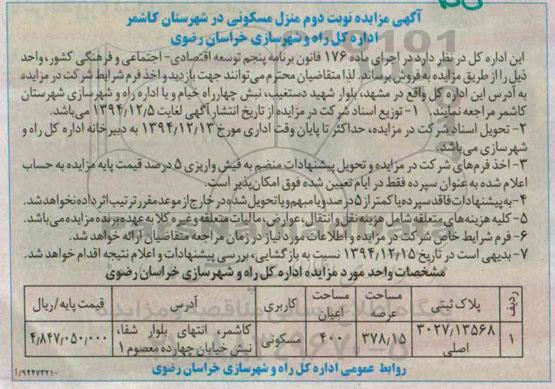 آگهی مزایده نوبت دوم منزل مسکونی در شهرستان کاشمر
اداره کل راه و شهرسازی خراسان رضوی
این اداره کل در نظر دارد در اجرای ماده ۱۷۶ قانون برنامه پنجم توسعه اقتصادی- اجتماعی و فرهنگی کشور، واحد
ذیل را از طریق مزایده به فروش برساند. لذا متقاضیان محترم می‌توانند جهت بازدید و اخذ فرم شرایط شرکت در مزایده
به آدرس این اداره کل واقع در مشهد، بلوار شهید دستغیب، نبش چهارراه خیام و یا اداره راه و شهرسازی شهرستان
کاشمر مراجعه نمایند. ۱- توزیع اسناد شرکت در مزایده از تاریخ انتشار آگهی لغایت ۱۳۹۴/۱۲/۵ می‌باشد.
۲- تحویل اسناد شرکت در مزایده، حداکثر تا پایان وقت اداری مورخ ۱۳۹۴/۱۲/۱۳ به دبیرخانه اداره کل راه و
شهرسازی می‌باشد.
۳- اخذ فرم‌های شرکت در مزایده و تحویل پیشنهادات منضم به فیش واریزی ۵ درصد قیمت پایه مزایده به حساب
اعلام شده به عنوان سپرده فقط در ایام تعیین شده فوق امکان‌پذیر است.
۴- به پیشنهادات فاقد سپرده یا کمتر از ۵ درصد و یا مبهم و یا تحویل شده در خارج از موعد مقرر ترتیب اثر داده نخواهد شد.
۵- کلیه هزینه‌های متعلقه شامل هزینه نقل و انتقال، عوارض، مالیات متعلقه و غیره کلا به عهده برنده مزایده می‌باشد.
۶- فرم شرایط خاص شرکت در مزایده و اطلاعات مورد نیاز در زمان مراجعه متقاضیان ارائه خواهد شد.
۷- بدیهی است در تاریخ ۱۳۹۴/۱۲/۱۵ نسبت به بازگشایی، بررسی پیشنهادات و اعلام نتیجه اقدام خواهد شد.
مشخصات واحد مورد مزایده اداره کل راه و شهرسازی خراسان رضوی
ردیف پلاک ثبتی مساحت عرصه مساحت اعیان کاربری آدرس قیمت پایه/ریال
۱ ۳۰۲۷/۱۳۵۶۸ اصلی ۳۷۸/۱۵ ۴۰۰ مسکونی کاشمر، انتهای بلوار شفا، نبش خیابان چهارده معصوم ۱ ۴,۸۴۷,۰۵۰,۰۰۰
روابط عمومی اداره کل راه و شهرسازی خراسان رضوی
۹۴۴۷۳۲۱۰/آ